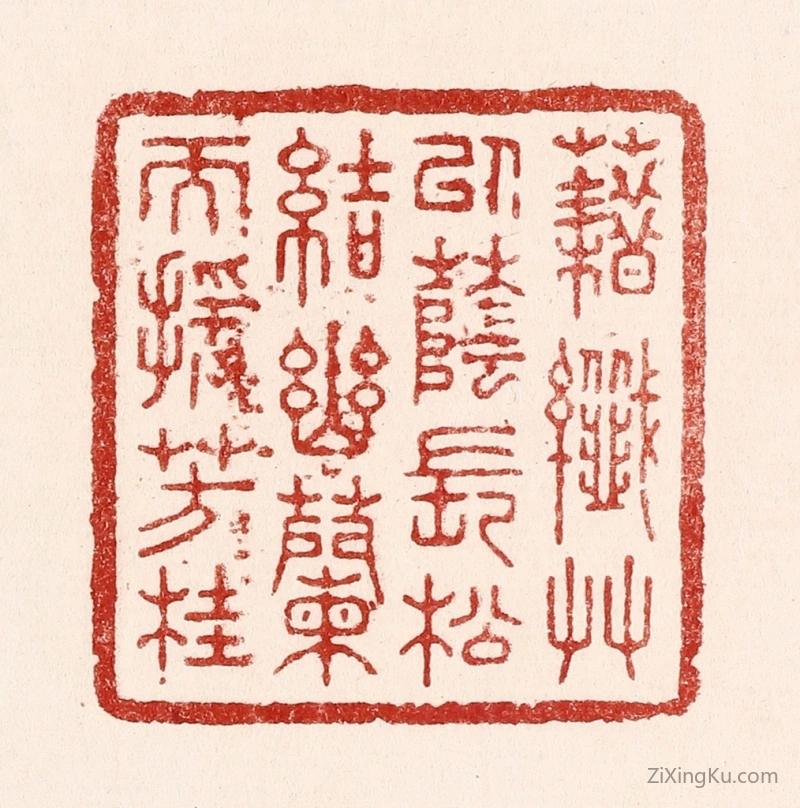 藉纖艸
以蔭長松
結幽蘭
而援芳桂
ZiXingKu.com